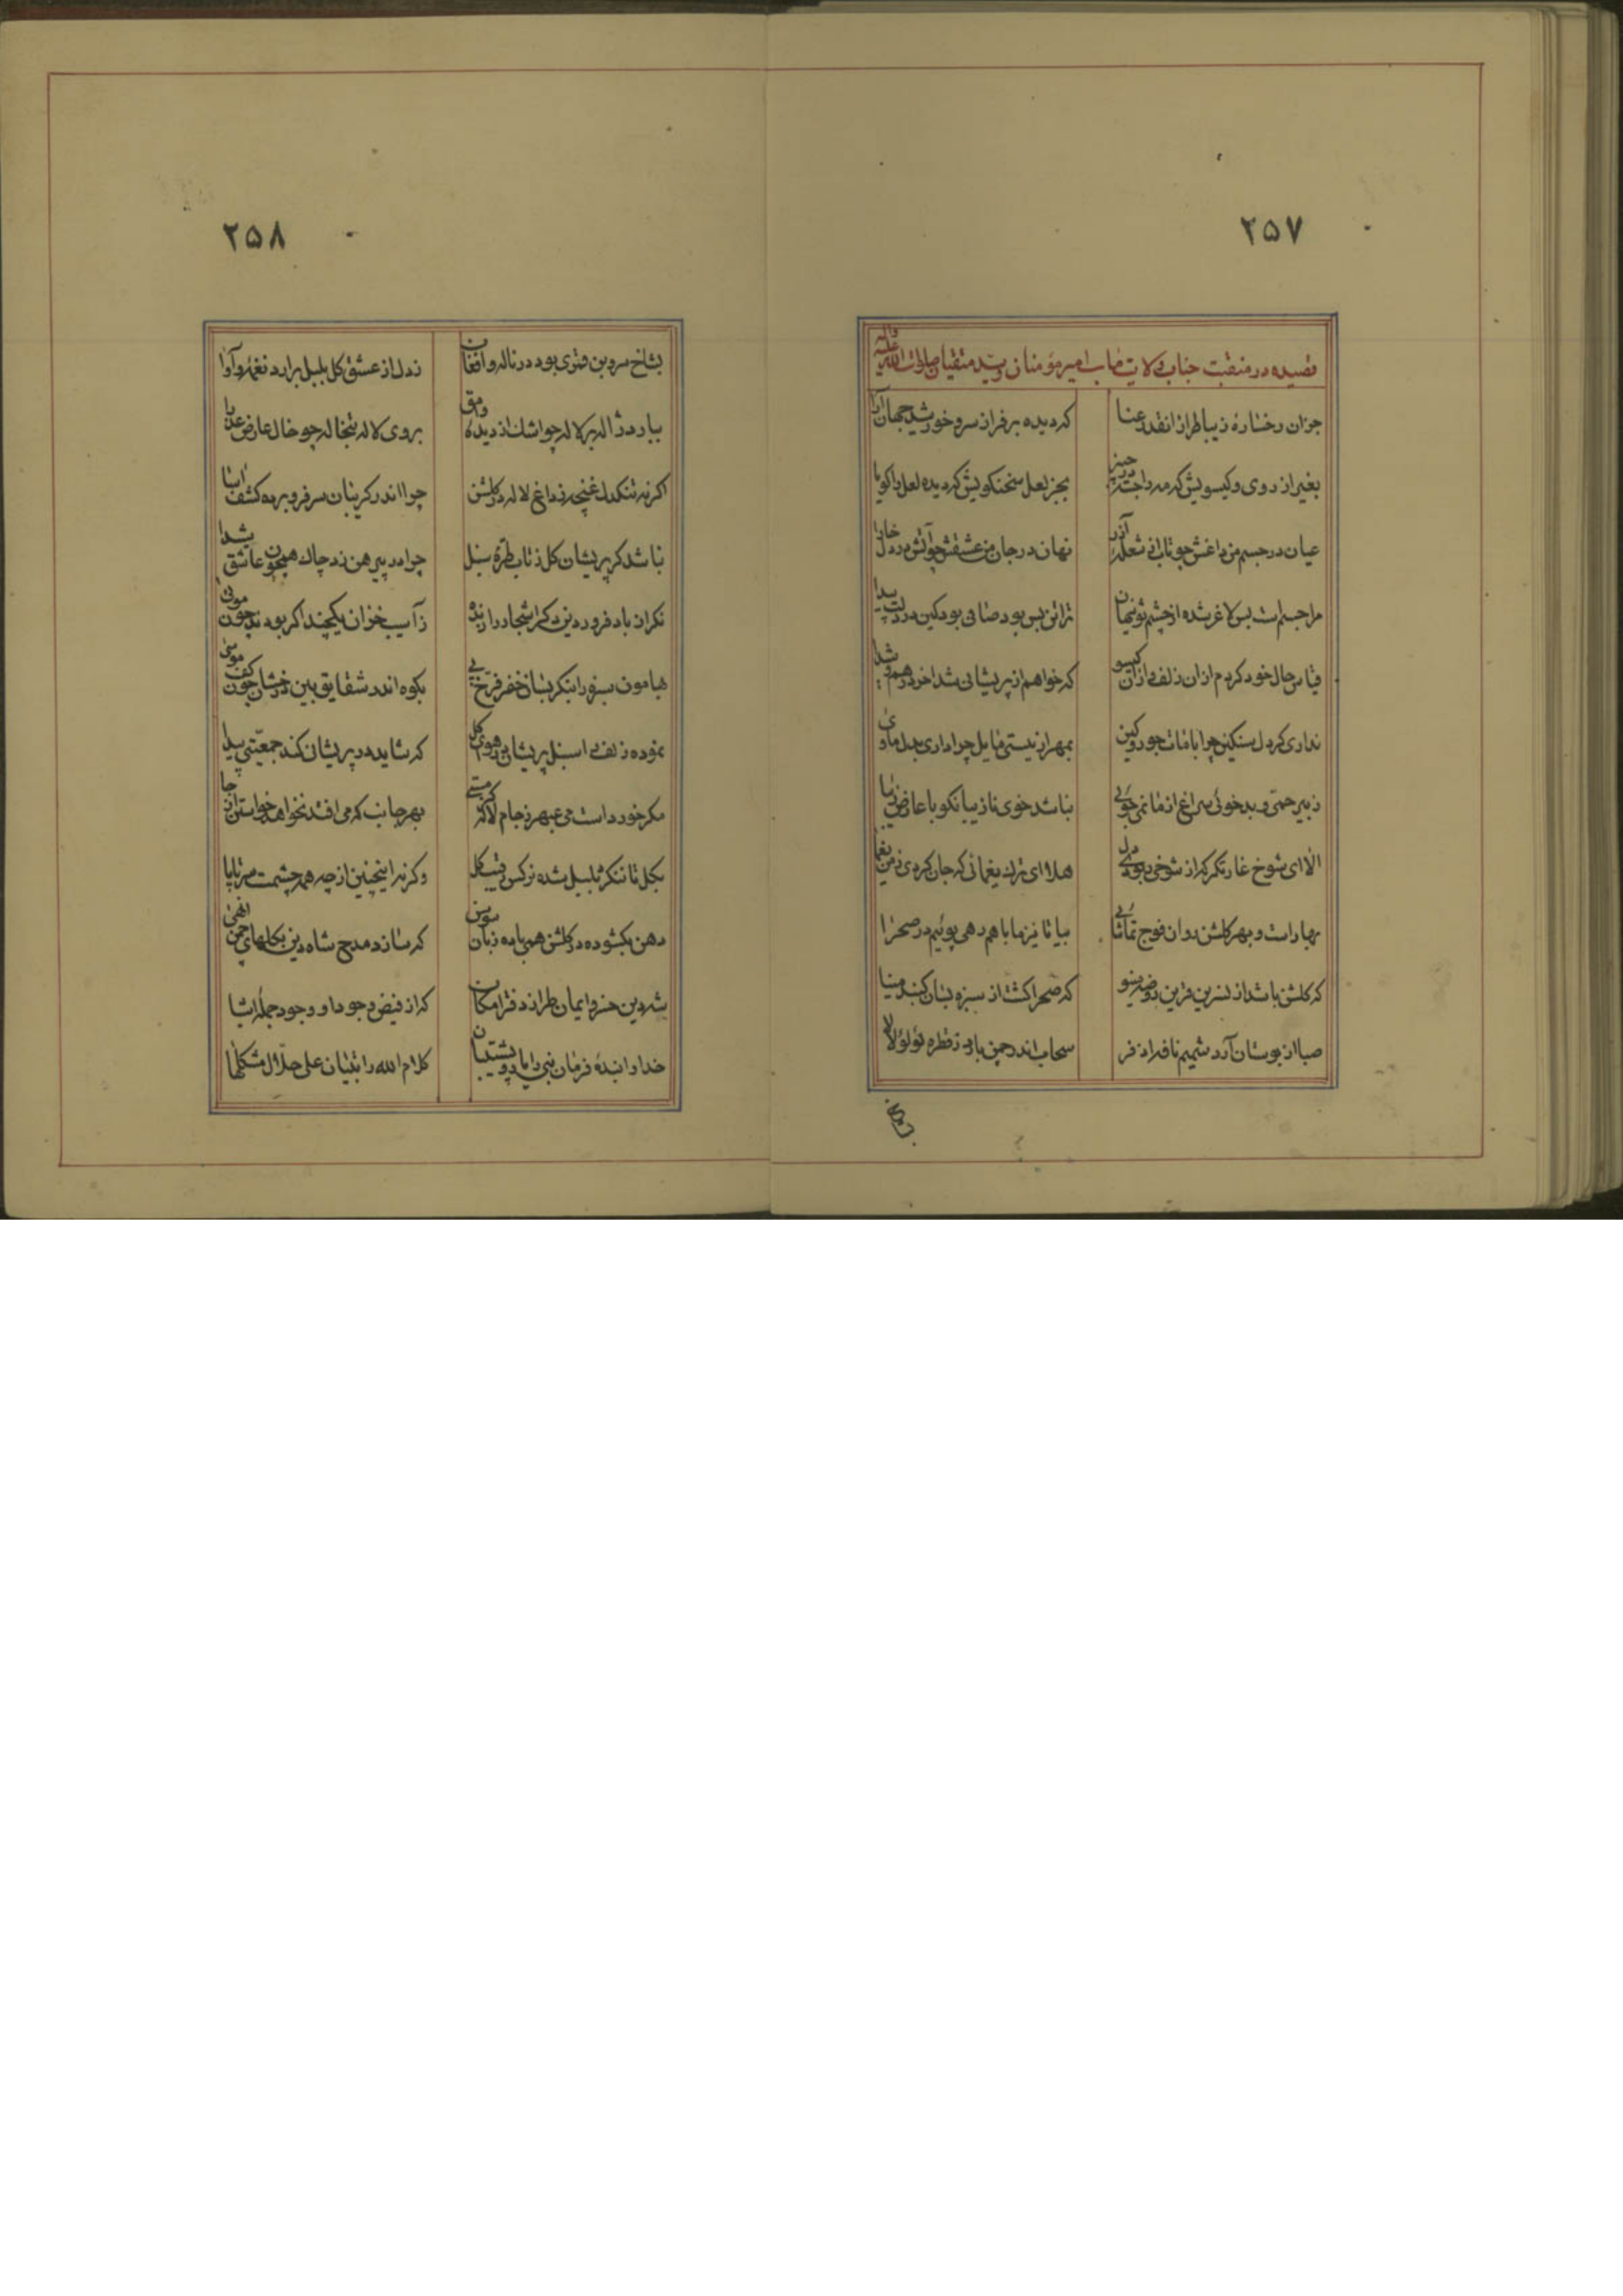 ۲۵۷
قصیده در منقبت جناب ولایت مآب امیر مؤمنان و سید متقیان صلوات الله علیه و آله
جز ان رخساره زیبا طراز انقد رعنا
که دیده بر فراز سرو خورشید جهان آرا
بغیر از روی و کیسویش که مه را جسته در چنبر
بجز لعل سخنکویش که دیده لعل را کویا
عیان در جسم من داغش چو تابانی شعله در آذر
نهان در جان من عشقش چو آتش در دل خارا
مرا جسمیست بس لاغر شده از چشم تو پنهان
ترا تن بس بود صافی بود کین در دلت پیدا
قیاس حال خود کردم از ان زلف و از ان کیسو
که خواهم از پریشانی شد اخر درهم و شیدا
نداری کر دل سنکین چرا با مات جور و کین
بمهر ار نیستی مایل چرا داری بدل ماوی
ز بیرحمی و بدخوئی سراغ از ما نمی جوئی
نباشد خوی نازیبا نکو با عارض زیبا
الا ای شوخ غارتکر که از شوخی ربودی دل
هلا ای ترک یغمائی که جان کردی ز من یغما
بهار است و بهر کلشن روان فوج تماشائی
بیا تا نیز ما با هم دهی پوئیم در صحرا
که کلشن باشد از نسرین قرین روضه مینو
که صحرا کشت از سبزه بسان کنبد مینا
صبا از بوستان آرد شمیم نافه اذفر
سحاب اندر چمن بارد ز قطره لؤلؤ لالا
بشاخ
۲۵۸
بشاخ سرو بن قمری بود در ناله و افغان
ز دل از عشق کل بلبل برارد نغمه و آوا
ببارد ژاله بر لاله چو اشک از دیده وامق
بروی لاله تبخاله چو خال عارض عذرا
اکر نه تنکدل غنچه ز داغ لاله در کلشن
چرا اندر کریبان سر فرو برده کشف آسا
نباشد کر پریشان کل ز تاب طره سنبل
چرا در پیرهن زد چاک همچون عاشق شیدا
نکر از باد فروردین دکر اشجار را زنده
ز آسیب خزان یکچند اکر بودند چون موتی
بهامون سبزه را بنکر بسان خضر فرخ پی
بکوه اندر شقایق بین درخشان چون کف موسی
نموده زلف را سنبل پریشان در هوای کل
که شاید در پریشانی کند جمعیتی پیدا
مکر خورد است می عبهر ز جام لاله کز مستی
بهر جانب که می افتد نخواهد خواستن از جا
بکل تا ننکرد بلبل شده نرکس رقیب کل
و کرنه اینچنین از چه همه چشمست سر تا پا
دهن بکشوده در کلشن همی با ده زبان سوسن
که سازد مدح شاه دین بکلهای چمن انهی
شه دین خسرو ایمان طراز دفتر امکان
که از فیض وجود او وجود جمله اشیا
خدا را بنده فرمان نبی را یار و پشتیبان
کلام الله را تبیان علی حلال مشکلها